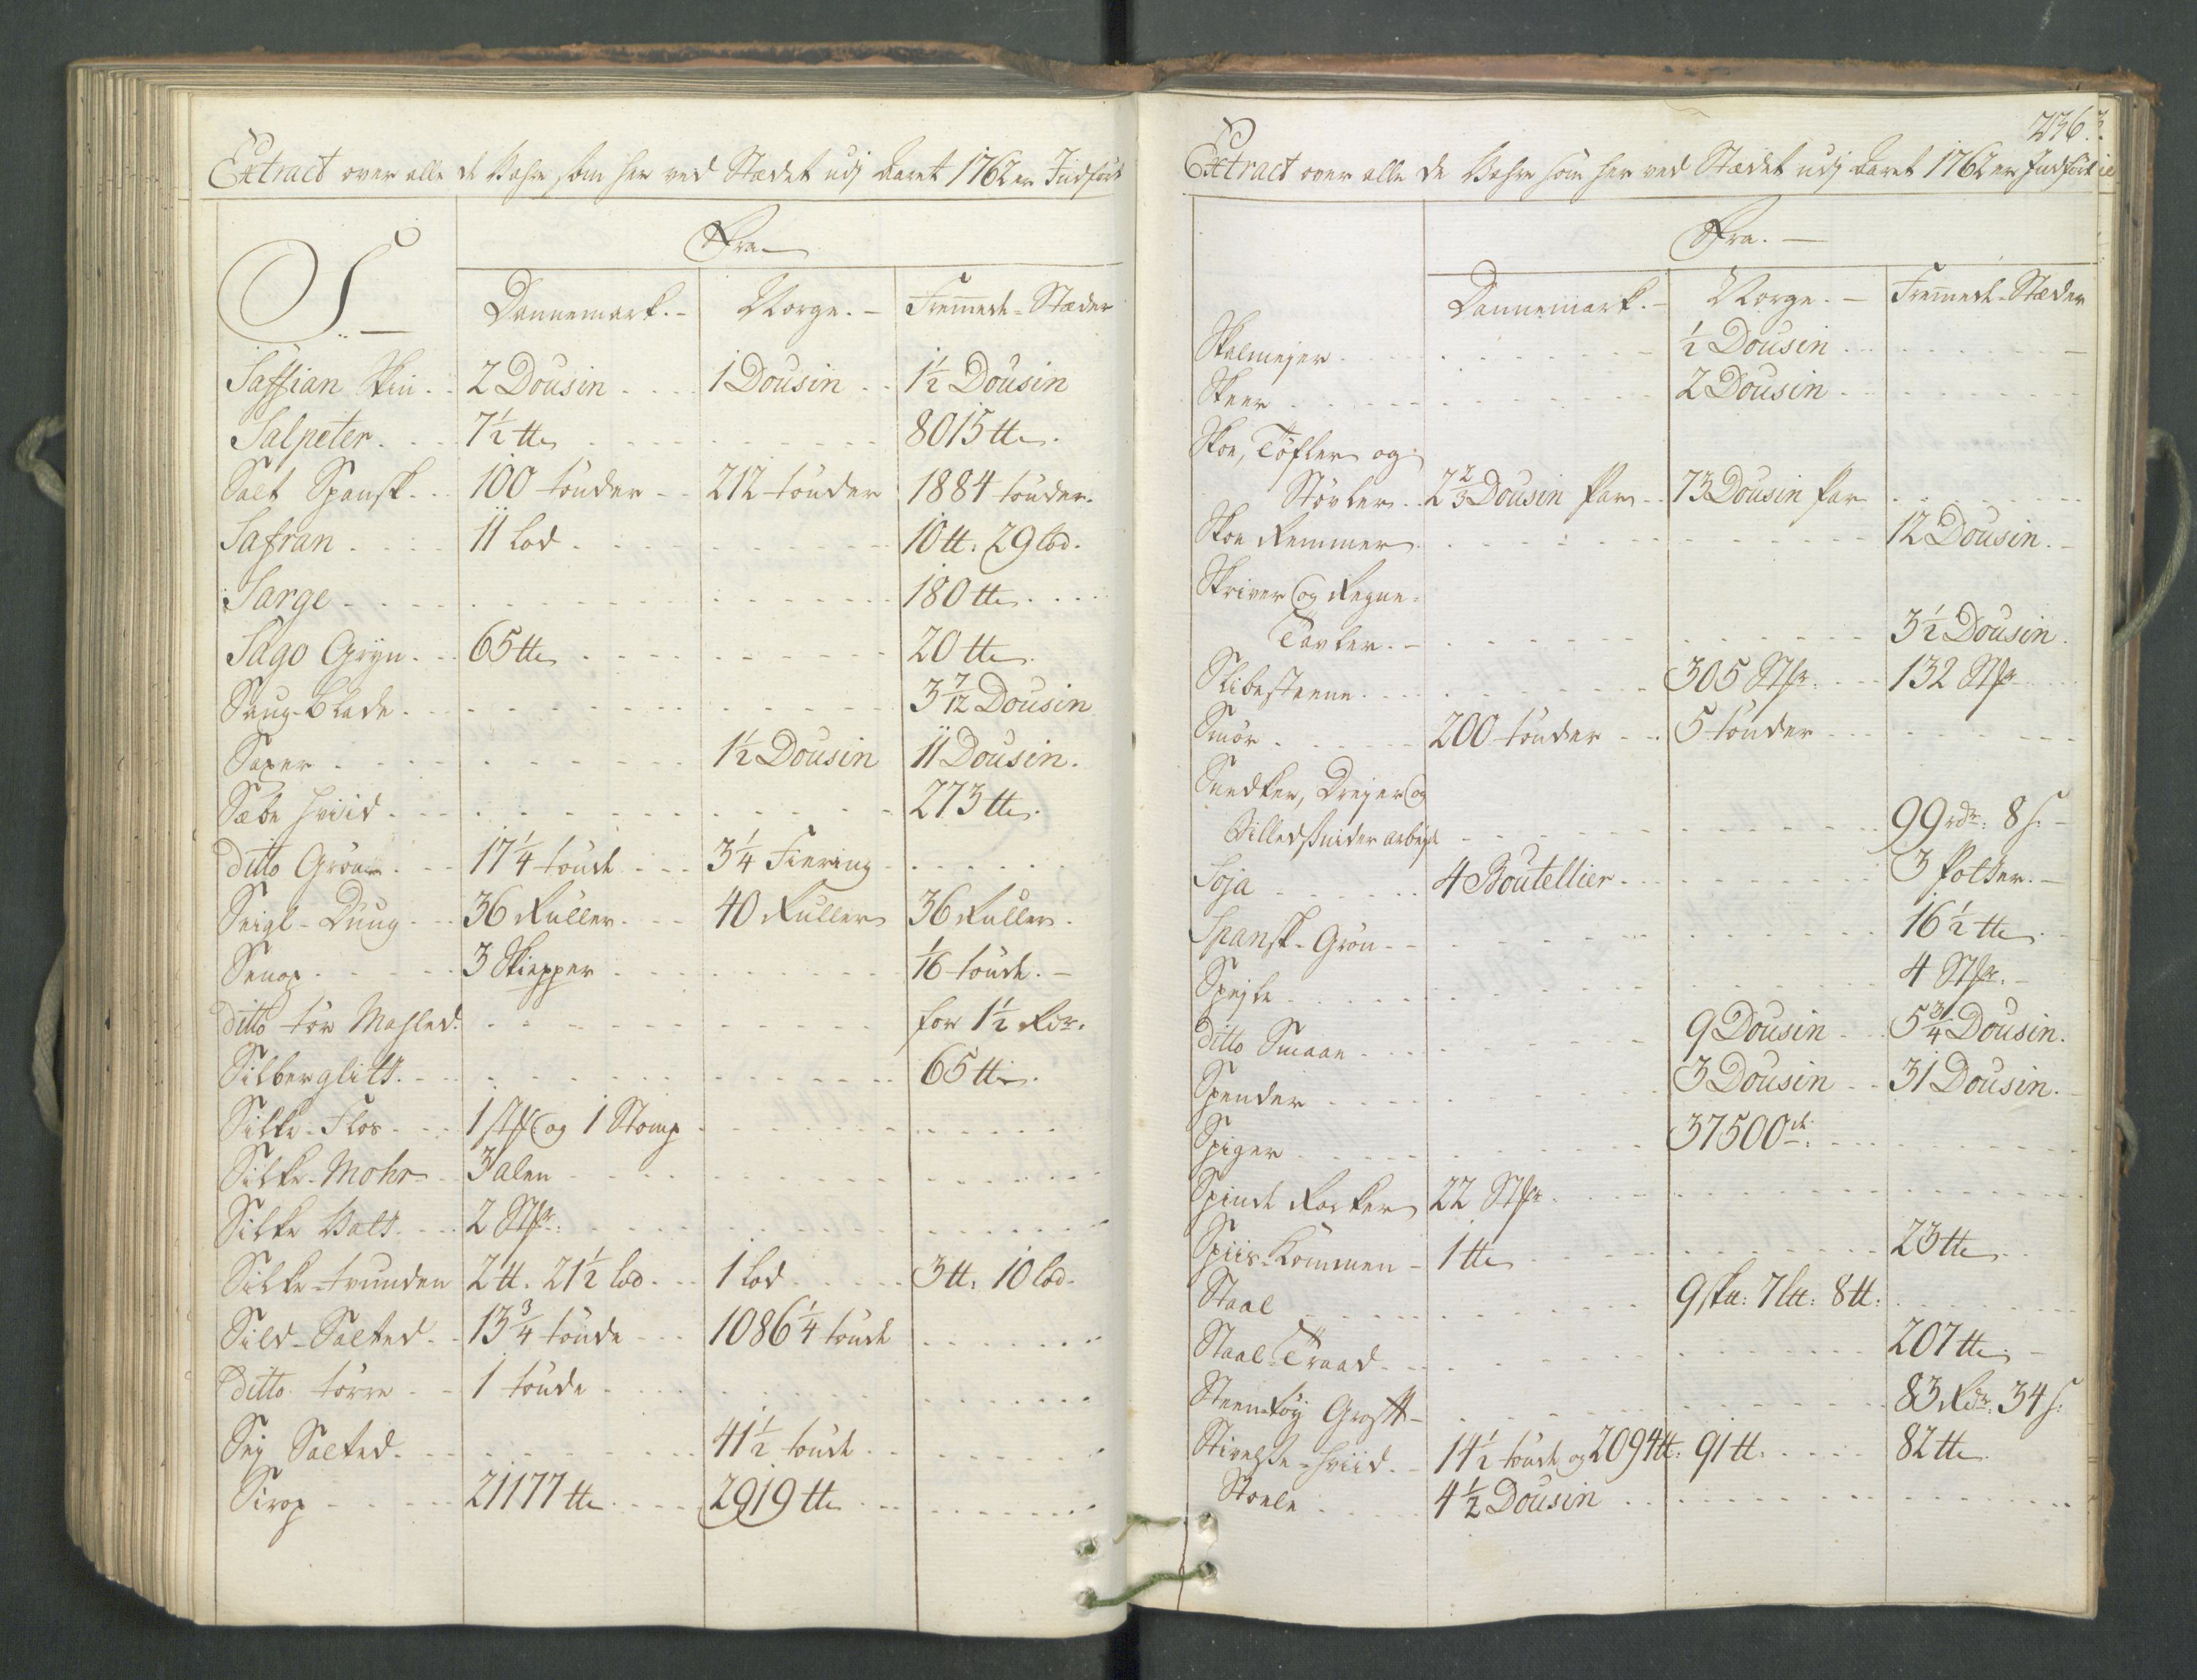 Extract over alle de Vahre som her ved Stædet udj Aaret 1762 er Indført
S.
Fra
Dannemark. Norge. Fremmede-Stæder
Saffian Skin. 2 Dousin 1 Dousin 1½ Dousin
Salpeter. 7½ ttⱼ 8015 tt.
Salt Spansk. 100 tönder 212 tönder 1884 tönder.
Safran 11 lod 10 tt. 29 lod.
Sarge 180 tt.
Sago Gryn. 65 tt 20 tt.
Saug-Blade. 3 7/12 Dousin
Saxer 1½ Dousin 11 Dousin.
Sæbe hviid. 273 tt.
ditto Grön. 17¼ tönde 3¼ Fiering
Seigl-Duug. 36 Ruller. 40 Ruller 36 Ruller.
Senop 3 Skiepper 1/6 tönde.
ditto tör Mahled. for 1½ Rdr.
Silberglitt. 65 tt.
Silke-Flor. 1 stk og 1 Stomp
Silke-Mohr 3 alen
Silke Vatt. 2 Stkr.
Silke-tvunden 2 tt. 21½ lod. 1 lod 3 tt. 10 lod.
Sild-Salted. 13¾ tönde 1086¼ tönde
ditto törre 1 tönde
Sej Salted. 41½ tönde
Sirop 21177 tt 2919 tt
236.
Extract over alle de Vahre som her ved Stædet udj Aaret 1762 er Indført
Fra.
Dannemark. Norge. Fremmede-Stæder
Skalmejer ½ Dousin
Skeer 2 Dousin
Skoe, Töfler og
Støvler. 2⅔ Dousin Par 73 Dousin Par
Skoe Remmer 12 Dousin.
Skriver og Regne-
Tavler. 3½ Dousin.
Slibesteene 305 Stkr. 132 Stkr
Smör 200 tönder 5 tönder
Snedker, Drejer og
Billedsnider arbejde 99 rdr: 8 s.
Soja 4 Boutellier 3 Potter.
Spansk-Grön 16½ tt.
Spejle 4 Stkr.
ditto Smaae 9 Dousin 5¾ Dousin.
Spender 3 Dousin 31 Dousin.
Spiger 37500 st:
Spinde Rocker 22 Stkr.
Spiis-Kommen 1 tt 23 tt
Staal 9 sktt: 7 ltt: 8 tt:
Staal Traad 207 tt
Steen-töy Groft 83 Rdr. 34 s.
Stivelse-hviid. 14½ tönde og 2094 tt. 91 tt. 82 tt
Stoele 4½ Dousin